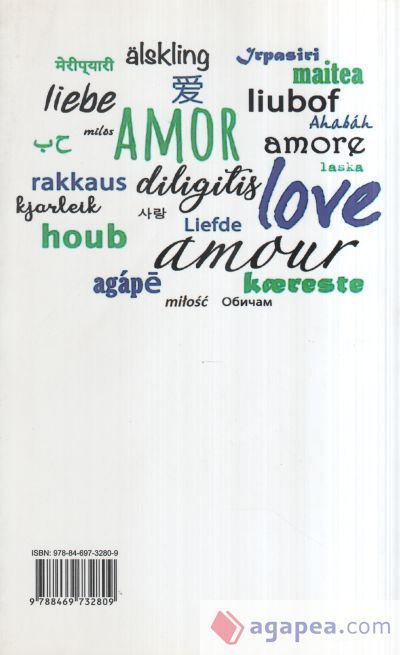 मेरीप्यारी
älskling
Jrpasiri
maitea
liebe
爱
liubof
Ahabáh
ب‌ح
milos
AMOR
amore
laska
rakkaus
diligitis
love
kjarleik
사랑
Liefde
houb
amour
agápē
kæreste
miłość
Обичам
ISBN: 978-84-697-3280-9
9 788469 732809
agapea.com